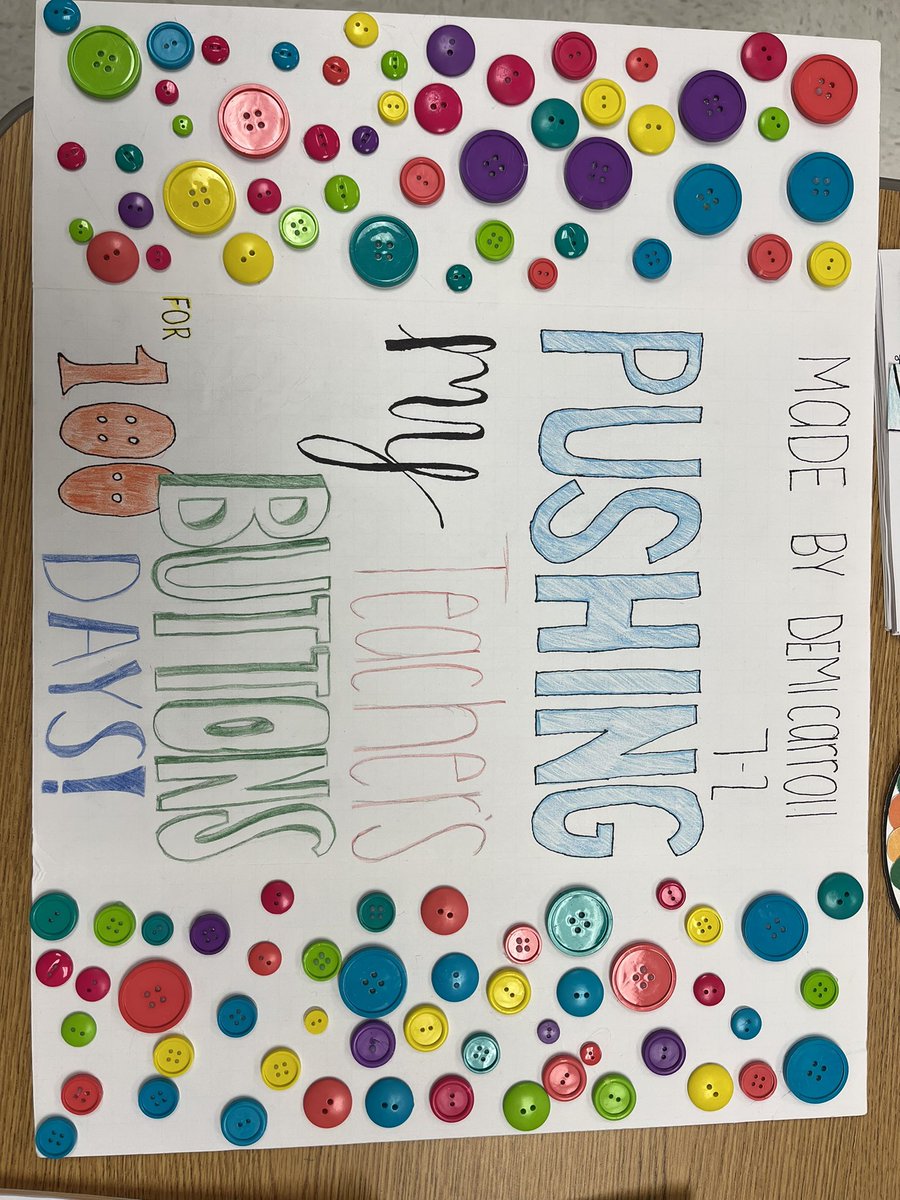 MaDE BY DEMI carroll
7-2
PUSHING
my Teacher's
BUTTONS
FOR 100 DAYS!